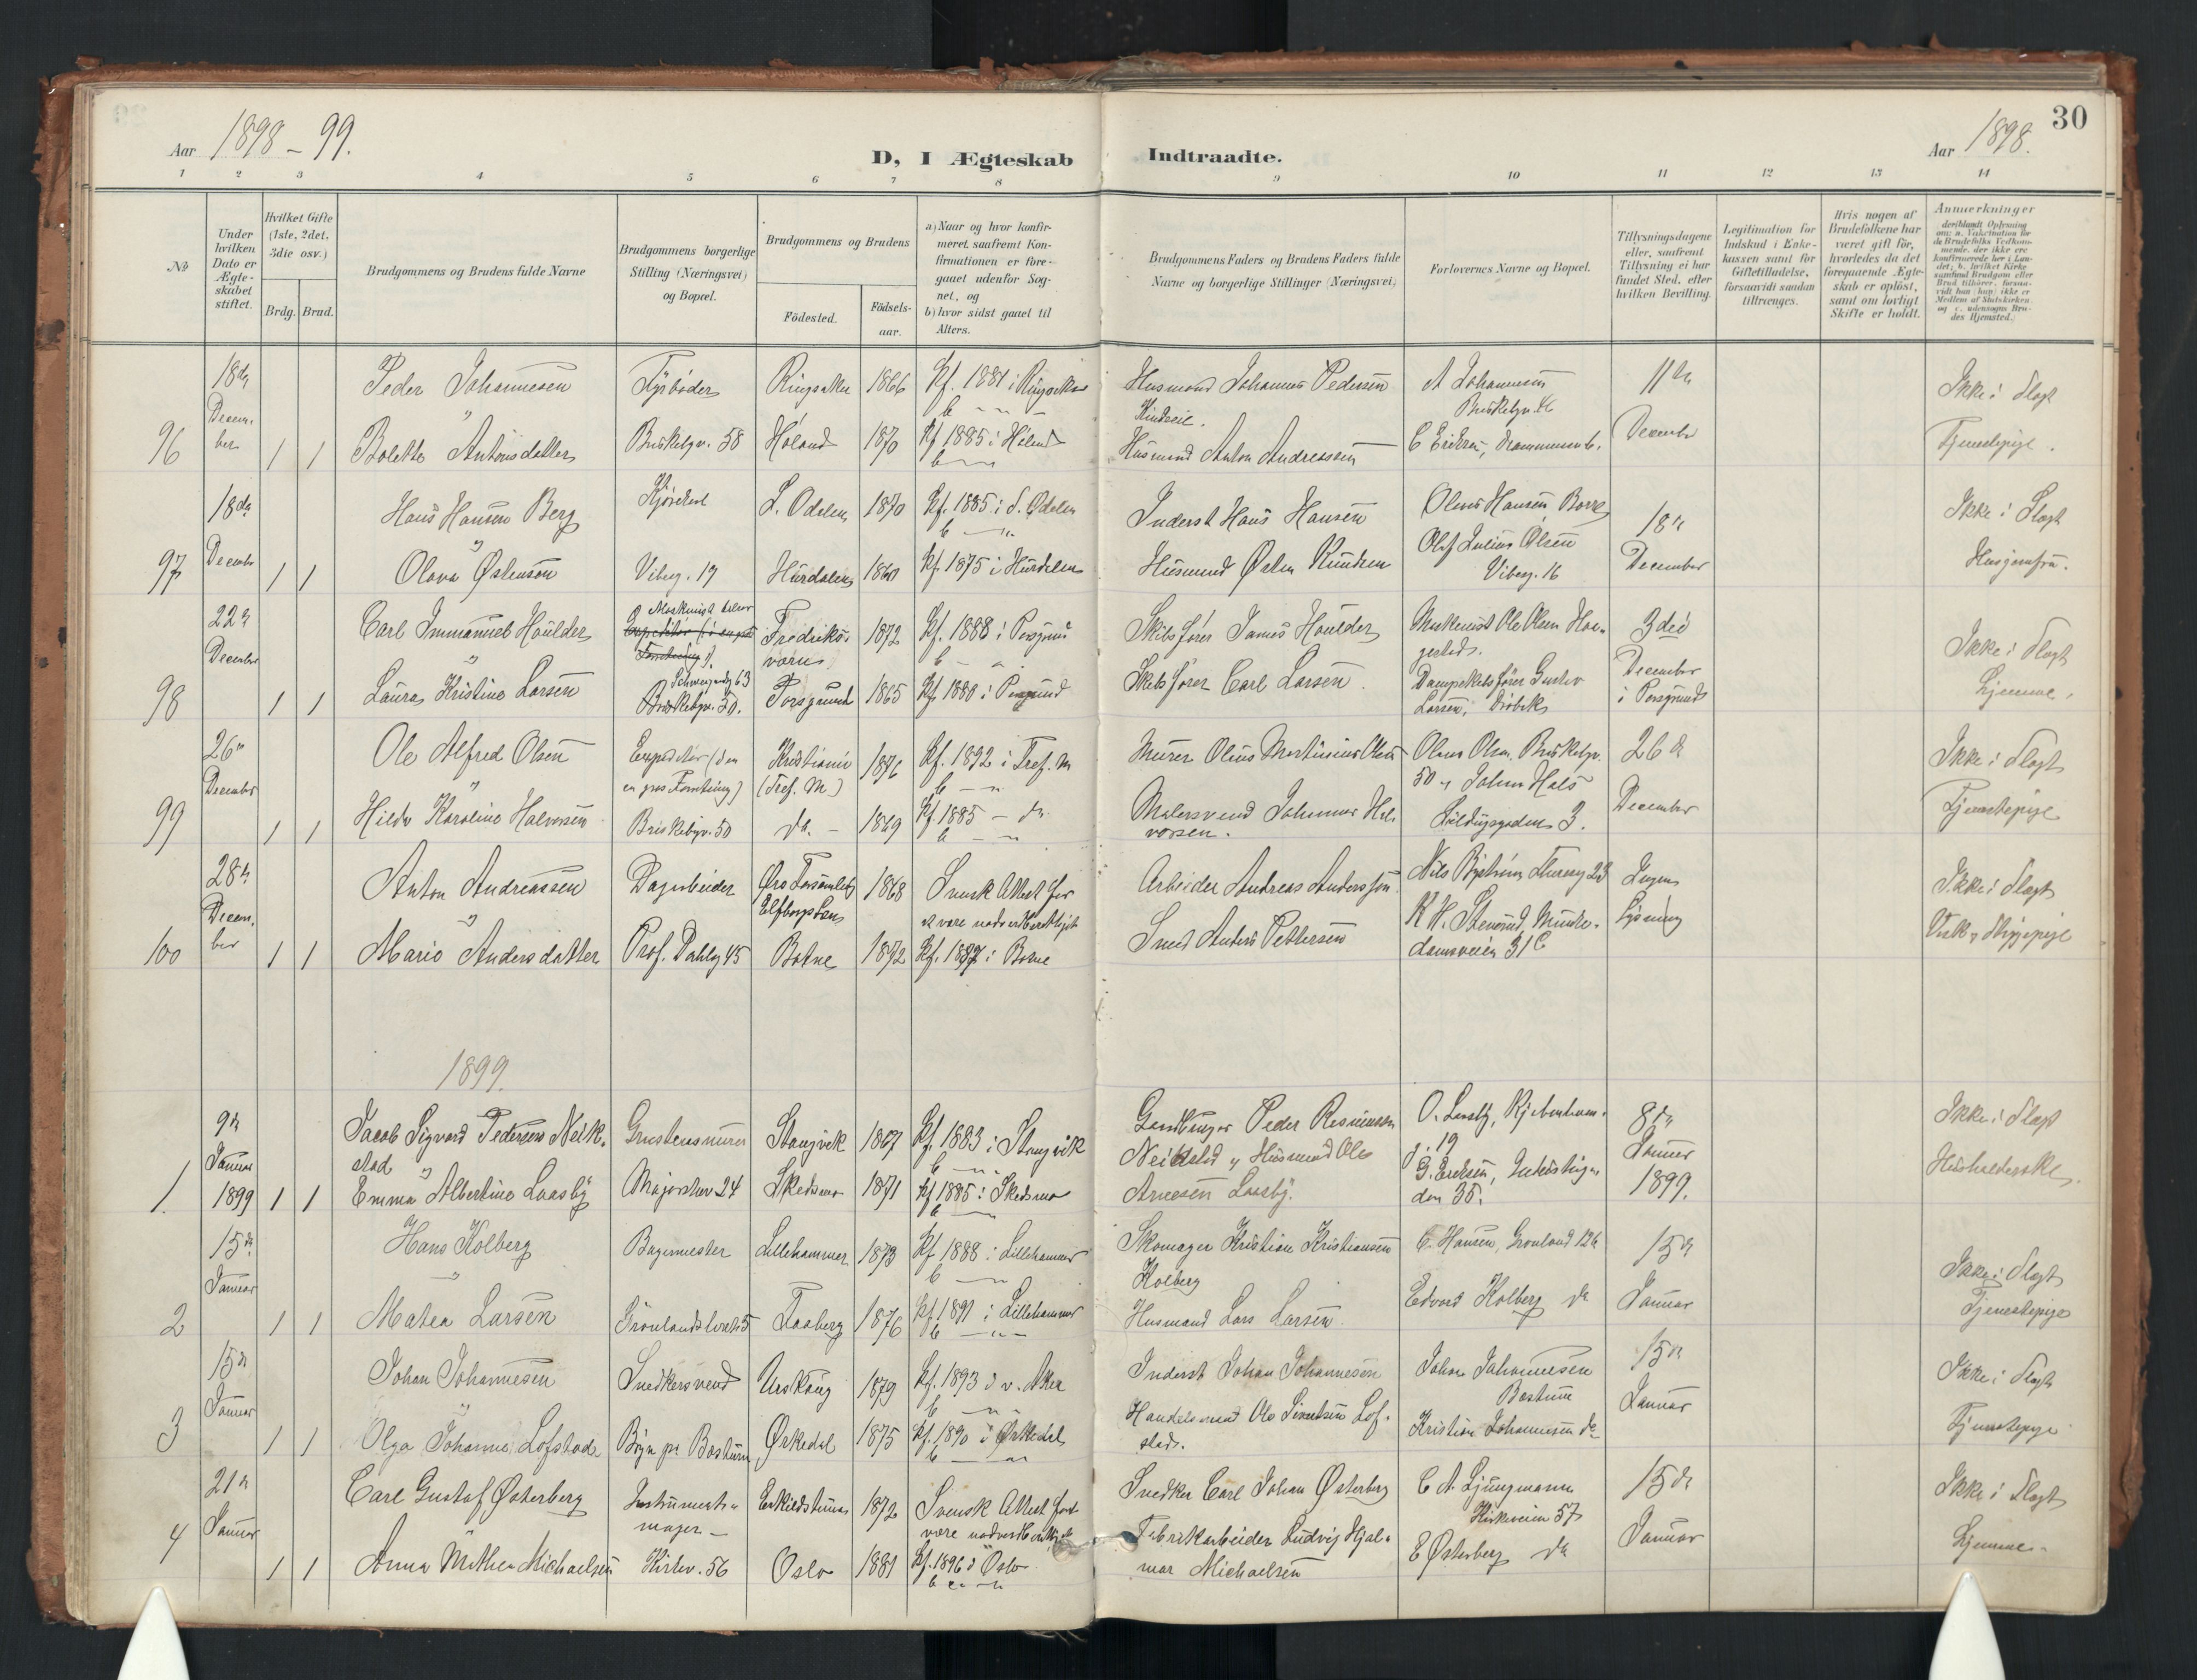 30
Aar 1898 - 99.
D, I Ægteskab Indtraadte.
Aar 1898.
1 2 3 4 5 6 7 8 9 10 11 12 13 14
No
Under hvilken Dato er Ægteskabet stiftet.
Hvilket Gifte (1ste, 2det, 3die osv.)
Brdg. Brud.
Brudgommens og Brudens fulde Navne
Brudgommens borgerlige Stilling (Næringsvei) og Bopæl.
Brudgommens og Brudens
Födested.
Födsels-aar.
a) Naar og hvor konfir-
meret, saafremt Kon-
firmationen er fore-
gaaet udenfor Sog-
net, og
b) hvor sidst gaaet til
Alters.
Brudgommens Faders og Brudens Faders fulde
Navne og borgerlige Stillinger (Næringsvei)
Forlovernes Navne og Bopæl.
Tillysningsdagene
eller, saafremt
Tillysning ei har
fundet Sted, efter
hvilken Bevilling.
Legitimation for
Indskud i Enke-
kassen samt for
Giftetilladelse,
forsaavidt saadan
tiltrænges.
Hvis nogen af
Brudefolkene har
været gift før,
hvorledes da det
foregaaende Ægte-
skab er oplöst,
samt om lovligt
Skifte er holdt.
Anmerkninger
96
18de Decem-
ber
1 1
Peder Johannesen
Bolette Antonsdatter
Fyrböder
Briskebyv. 58
Ringsaker 1866 Kf. 1881 i Ringsaker
Höland 1870 Kf 1885 i Höland
Husmand Johannes Pedersen
Husmand Anton Andreassen
A Johannesen
C Eriksen,
11te
December
Ikke i Slægt
Tjenestepige.
97
18de
December
1 1
Hans Hansen Berg
Olava Østenson
Kjørekarl
Vibeg. 17
S. Odalen 1870 Kf. 1885 i S. Odalen
Hurdalen 1860 Kf 1875 i Hurdalen
Inderst Hans Hansen
Husmand Østen Knudsen
Olaf Julius Olsen
Vibeg. 16
18de
December
Ikke i Slægt
Husjomfru.
98
22de
December
1 1
Carl Immanuel Houlder
Laura Kristine Larsen
Briskebyv. 50.
Fredriks-
værn 1872 Kf. 1888 i Porsgrund
Porsgrund 1865 Kf. 1880 i Porsgrund
Skibsfører James Houlder
Skibsfører Carl Larsen.
Maskinist Ole Olsen Hae-
gested.
Dampskibsfører Gustav
Larsen, Drøbak
3die
December
i Porsgrund
Ikke i Slægt
Hjemme.
99
26de
December
1 1
Ole Alfred Olsen
Hilda Karoline Halvorsen
Expeditør (i en
en gros Forretning)
Briskebyv. 50
Kristiania
(Tref. M.) 1876 Kf. 1892 i Tref. M
do. - 1869 Kf 1885 - do
Murer Olaus Martinius Olsen
Malersvend Johannes Hal-
vorsen.
Olaus Olsen Briskebyv.
50 Johan Hals
3.
26de
December
Ikke i Slægt
Tjenestepige
100
28de
Decem-
ber
1 1
Anton Andreassen
Marie Andersdatter
Dagarbeider
Prof. Dahls g 45
Elfborgs Len 1868 Svensk Attest for
at være nadverdberettiget
Botne 1872 Kf. 1887 i Botne
Arbeider Andreas Andersson
Smed Anders Pettersen
K H. Stensrud, Munke-
damsveien 31 C
Ingen
Lysning
Ikke i Slægt
1899.
1.
9de
Januar
1899
1 1
Jacob Sigvard Pedersen Neik-
stad
Emma Albertine Laasby
Grusteensmurer
Majorstuv 24
Stangvik 1867 Kf. 1883 i Stangvik
Skedsmo 1871 Kf 1885 i Skedsmo
Gaardbruger Peder Rasmussen
Neikstad Husmand Ole
Arnesen Laasby.
O. Laasby, Kjøbenhavn-
g. 19
G. Eriksen, Industriga-
den 35.
8de
Januar
1899.
Ikke i Slægt
Husholderske.
2
15de
Januar
1 1
Hans Kolberg
Matea Larsen
Bagermester
Grønlandsleret 5
Lillehammer 1873 Kf 1888 i Lillehammer
Faaberg 1876 Kf 1891 i Lillehammer
Skomager Kristian Kristiansen
Kolberg
Husmand Lars Larsen.
C. Hansen, Grønland 12b
Edvard Kolberg do
15de
Januar
Ikke i Slægt
Tjenestepige
3
15de
Januar
1 1
Johan Johannesen
Olga Johanne Lofstad
Snedkersvend
Bygn pr. Bastum
Urskoug 1879 Kf. 1893 i v. Aker
Ørkedal 1875 Kf. 1890 i Ørkedal
Inderst Johan Johannesen
Handelsmand Ole Sivertsen Lof-
stad.
Johan Johannesen
Bastum
Kristian Johannesen do
15de
Januar
Ikke i Slægt
Tjenestepige
4
21de
Januar
1 1
Carl Gustaf Østerberg
Anna Mathea Michaelsen
Instrument-
mager
Kirkev. 56
Eskildstuna 1872 Svensk Attest for at
være nadverdberettiget
Oslo 1881 Kf. 1896 i Oslo
Snedker Carl Johan Østerberg
Fabrikarbeider Ludvig Hjal-
mar Michaelsen
C A. Ljungmann
Kirkeveien 57
E Østerberg do
15de
Januar
Ikke i Slægt
Hjemme.